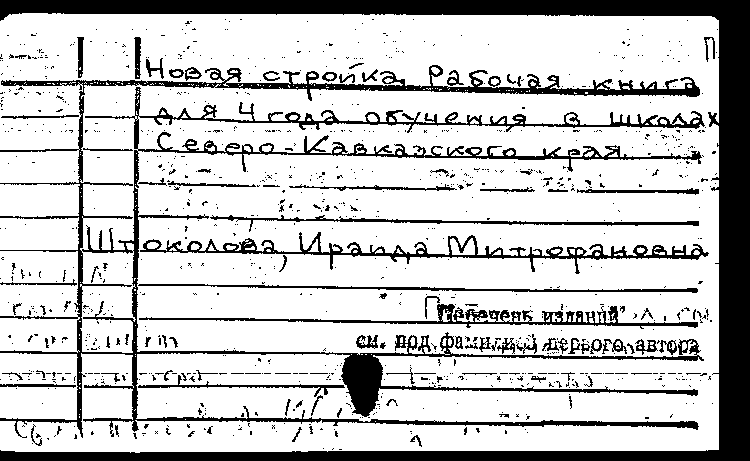 Новая стройка. Рабочая книга
для 4 года обучения в школах
Северо-Кавказского края.
Штоколова, Ираида Митрофановна
"Перечень изданий"
см. под фамилией первого автора